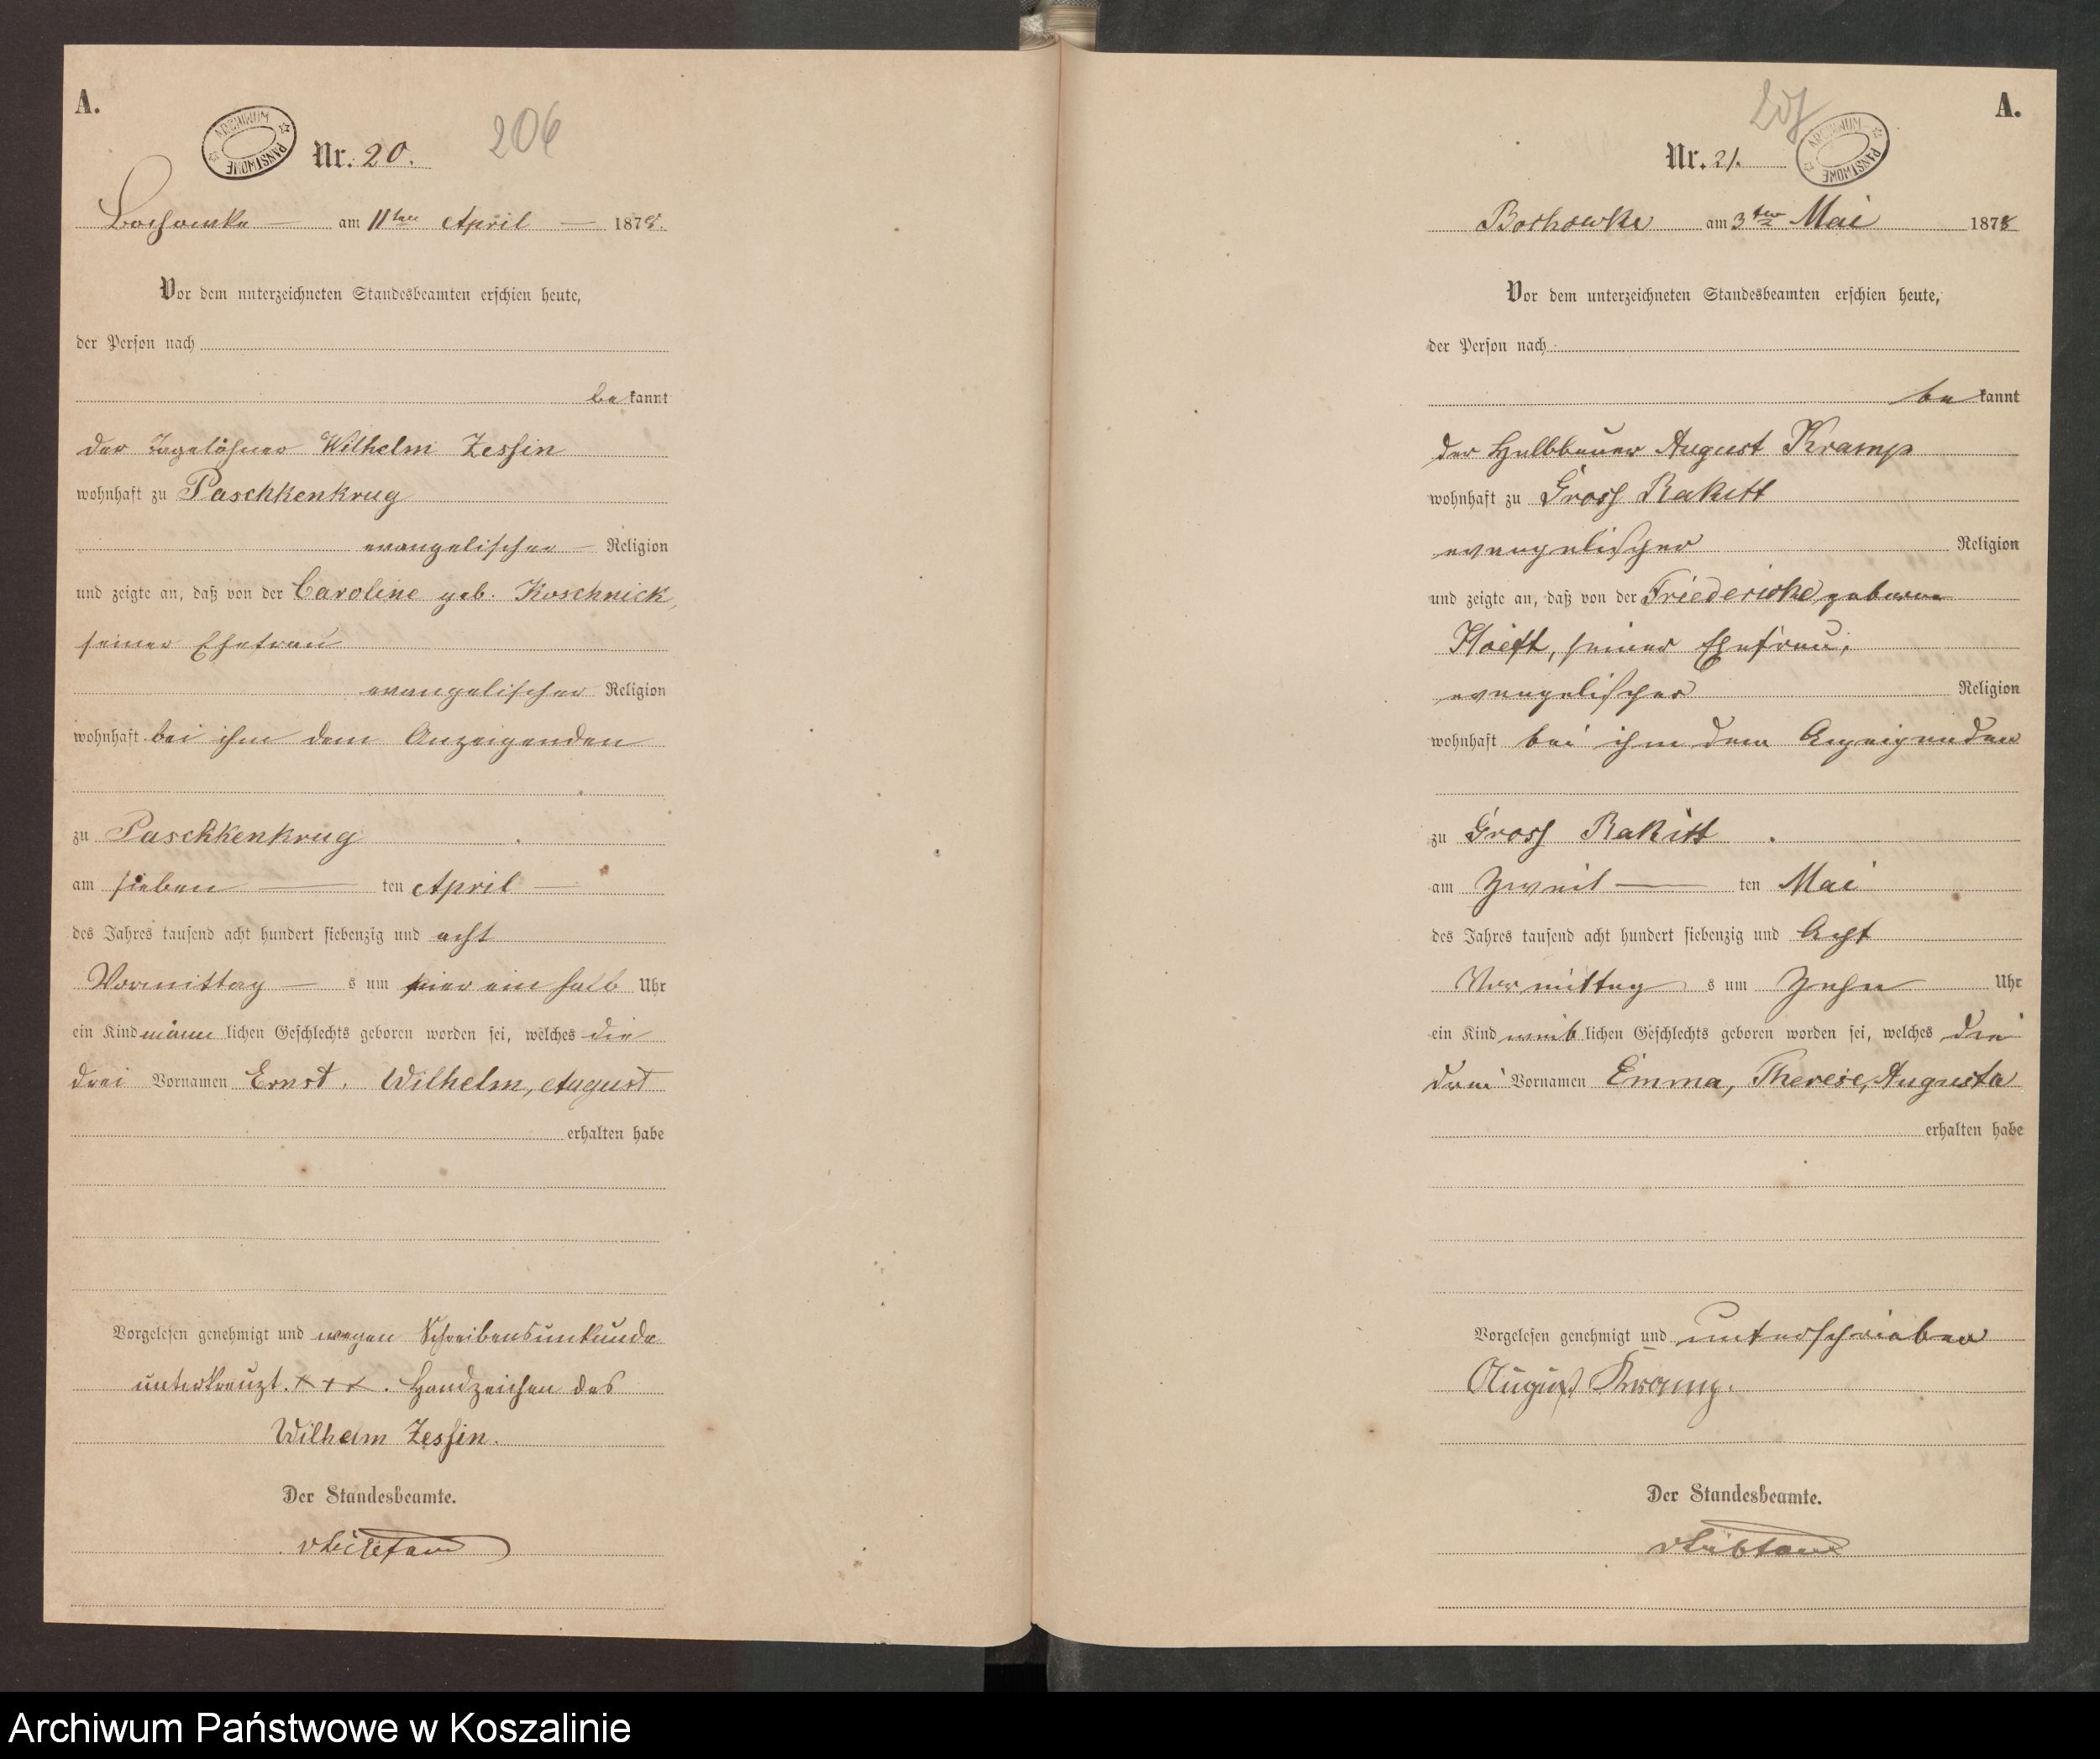 A.
ARCHIWUM PAŃSTWOWE
206
Nr. 20.
Boschowke am 11ten April 1878.
Vor dem unterzeichneten Standesbeamten erschien heute,
der Person nach
bekannt
der Tagelöhner Wilhelm Zessin
wohnhaft zu Paschkenkrug
evangelischer Religion
und zeigte an, daß von der Caroline geb. Koschnick,
seiner Ehefrau
evangelischer Religion
wohnhaft bei ihm dem Anzeigenden
zu Paschkenkrug
am sieben ten April
des Jahres tausend acht hundert siebenzig und acht
Vormittag s um vier ein halb Uhr
ein Kind männlichen Geschlechts geboren worden sei, welches die
drei Vornamen Ernst, Wilhelm, August
erhalten habe
Vorgelesen genehmigt und wegen Schreibensunkunde
unterkreuzt. x x x. Handzeichen des
Wilhelm Zessin.
Der Standesbeamte.
A.
207
ARCHIWUM PAŃSTWOWE
Nr. 21.
Boschowke am 3ten Mai 1878
Vor dem unterzeichneten Standesbeamten erschien heute,
der Person nach
bekannt
der Halbbauer August Kramp
wohnhaft zu Gross Rakitt
evangelischer Religion
und zeigte an, daß von der Friedericke, geborne
seiner Ehefrau,
evangelischer Religion
wohnhaft bei ihm dem Anzeigenden
zu Gross Rakitt
am Zweit ten Mai
des Jahres tausend acht hundert siebenzig und Acht
Vormittag s um Zehn Uhr
ein Kind weiblichen Geschlechts geboren worden sei, welches die
drei Vornamen Emma, Therese, Augusta
erhalten habe
Vorgelesen genehmigt und unterschrieben
August Kramp.
Der Standesbeamte.
Archiwum Państwowe w Koszalinie